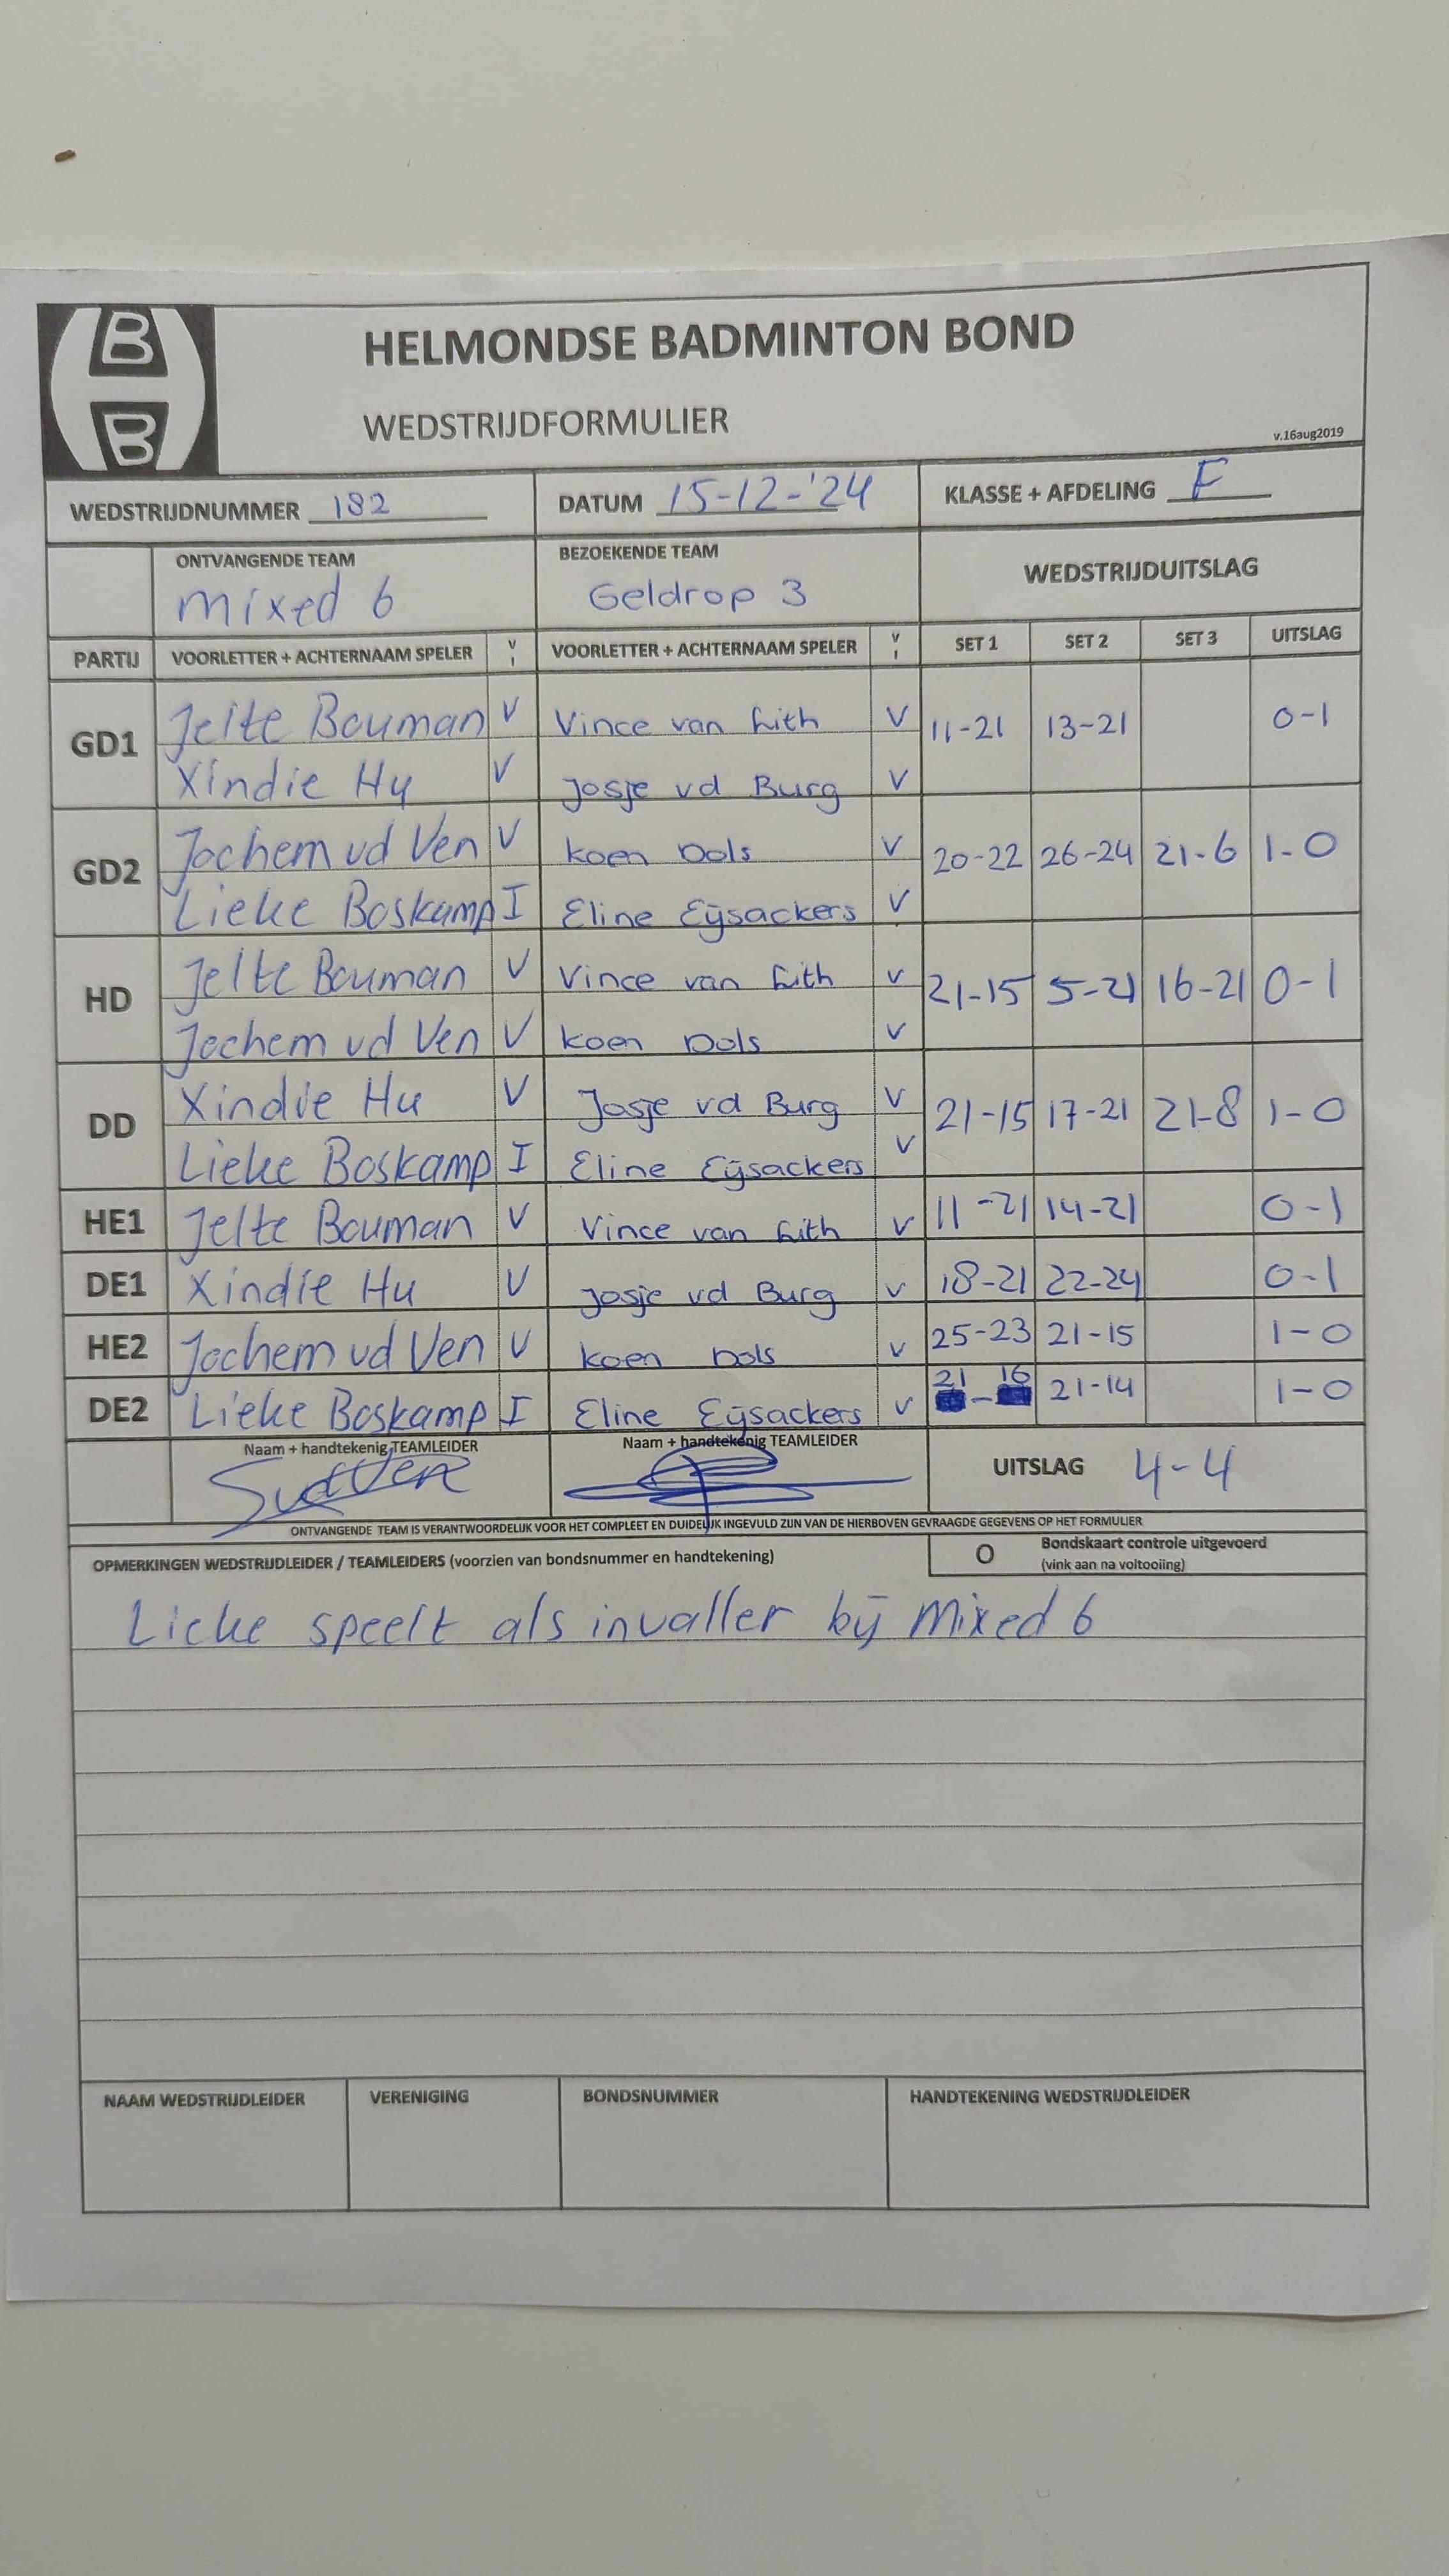 B
B
HELMONDSE BADMINTON BOND
WEDSTRIJDFORMULIER
v.16aug2019
WEDSTRIJDNUMMER 182 DATUM 15-12-'24 KLASSE + AFDELING F
ONTVANGENDE TEAM BEZOEKENDE TEAM WEDSTRIJDUITSLAG
Mixed 6 Geldrop 3
PARTIJ VOORLETTER + ACHTERNAAM SPELER V I VOORLETTER + ACHTERNAAM SPELER V I SET 1 SET 2 SET 3 UITSLAG
GD1 Jelte Bouman V Vince van Lith V 11-21 13-21 0-1
Xindie Hu V Josje vd Burg V
GD2 Jochem vd Ven V Koen Dols V 20-22 26-24 21-6 1-0
Lieke Boskamp I Eline Eijsackers V
HD Jelte Bouman V Vince van Lith V 21-15 5-21 16-21 0-1
Jochem vd Ven V Koen Dols V
DD Xindie Hu V Josje vd Burg V 21-15 17-21 21-8 1-0
Lieke Boskamp I Eline Eijsackers V
HE1 Jelte Bouman V Vince van Lith V 11-21 14-21 0-1
DE1 Xindie Hu V Josje vd Burg V 18-21 22-24 0-1
HE2 Jochem vd Ven V Koen Dols V 25-23 21-15 1-0
DE2 Lieke Boskamp I Eline Eijsackers V 21-16 21-14 1-0
Naam + handtekenig TEAMLEIDER Naam + handtekenig TEAMLEIDER UITSLAG 4-4
ONTVANGENDE TEAM IS VERANTWOORDELIJK VOOR HET COMPLEET EN DUIDELIJK INGEVULD ZIJN VAN DE HIERBOVEN GEVRAAGDE GEGEVENS OP HET FORMULIER
OPMERKINGEN WEDSTRIJDLEIDER / TEAMLEIDERS (voorzien van bondsnummer en handtekening) O Bondskaart controle uitgevoerd
(vink aan na voltooiing)
Lieke speelt als invaller bij Mixed 6
NAAM WEDSTRIJDLEIDER VERENIGING BONDSNUMMER HANDTEKENING WEDSTRIJDLEIDER